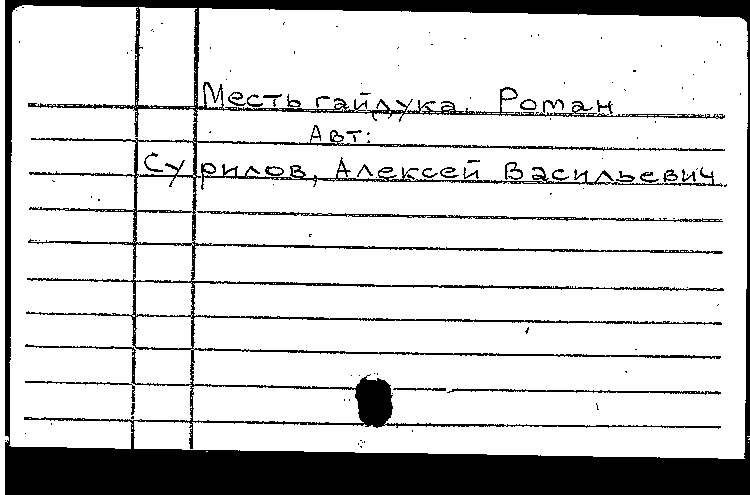 Месть гайдука. Роман
Авт:
Сурилов, Алексей Васильевич